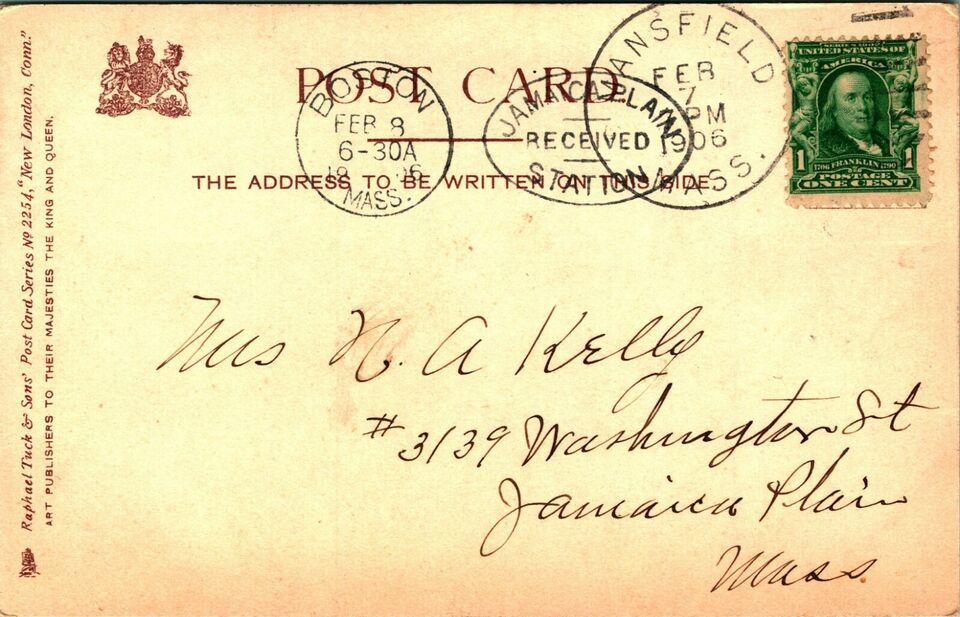 Raphael Tuck & Sons' Post Card Series Nº 2254, "New London, Conn."
ART PUBLISHERS TO THEIR MAJESTIES THE KING AND QUEEN.
POST CARD.
THE ADDRESS TO BE WRITTEN ON THIS SIDE.
BOSTON
FEB 8
6-30A
MASS.
JAMAICA PLAIN
RECEIVED
STATION
MANSFIELD
FEB
7
PM
1906
MASS.
SERIES 1902
UNITED STATES OF
AMERICA
1 1706 FRANKLIN 1790 1
POSTAGE
ONE CENT
Mrs N. A Kelly
#3139 Washington St
Jamaica Plain
Mass